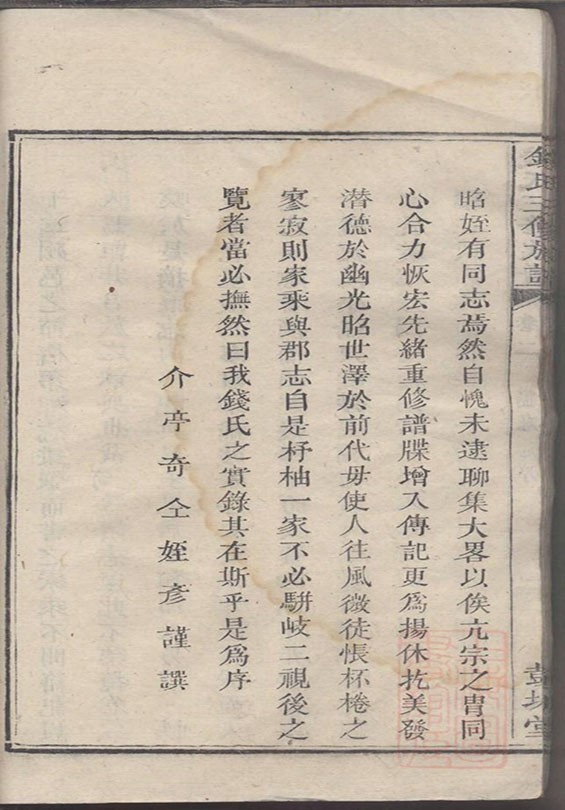 錢氏三修族譜
卷二
彭城堂
昭姪有同志焉然自愧未逮聊集大畧以俟亢宗之胄同
心合力恢宏先緒重修譜牒增入傳記更爲揚休扢美發
潛德於幽光昭世澤於前代毋使人往風微徒悵杯棬之
寥寂則家乘與郡志自是杼柚一家不必駢歧二視後之
覽者當必撫然曰我錢氏之實錄其在斯乎是爲序
介亭奇仝姪彦謹譔